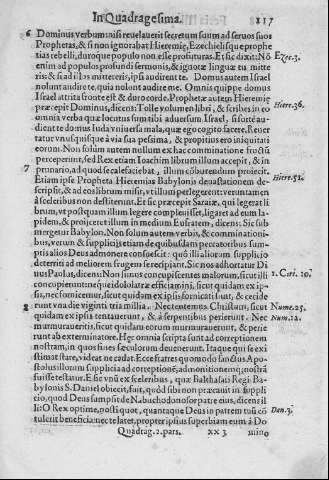 In Quadragesima. 817
6 Dominus verbum nisi revelaverit secretum suum ad servos suos
Prophetas, & si non ignorabat Hieremię, Ezechielisque prophe
tias rebelli, duroque populo non esse profuturas. Et sic dixit: Nō
Ezec. 3.
enim ad populos profundi sermonis, & ignotæ linguæ tu mitte
ris: & si ad illos mittereris, ipsi audirent te. Domus autem Israel
nolunt audire te, quia nolunt audire me. Omnis quippe domus
Israel attrita fronte est & duro corde. Prophetæ autem Hieremię
Hiere. 36.
præcepit Dominus, dicens: Tolle volumen libri, & scribes in eo
omnia verba quæ locutus sum tibi adversum Israel, si forte au-
diente domus Iuda universa mala, quæ ego cogito facere. Rever
tatur vnusquisque à via sua pessima, & propitius ero iniquitati
eorum. Non solùm autem nullum ex hac comminatione fructū
perceperunt, sed Rex etiam Ioachim librum illum accepit, & in
7 prunario, ad quod se calefaciebat, illum cōburendum proiecit.
Hiere. 51.
Etiam ipse Propheta Hieremias Babylonis devastationem de-
scripsit, & ad eos librum misit, vt illum perlegerent: verumtamen
à sceleribus non destiterunt. Et sic præcepit Saraiæ, qui legerat li
brum, vt postquam illum legere complevisset, ligaret ad eum la-
pidem, & proijceret illum in medium Eufratem, dicens: Sic sub
mergetur Babylon. Non solum autem verbis, & comminationi-
bus, verùm & supplicijs etiam de quibusdam peccatoribus sum-
ptis alios Deus admonere consuescit: quò illi aliorum supplicio
deterriti ad meliorem frugem se recipiant. Sic nos adhortatur Di
1. Cori. 10.
uus Paulus, dicens: Non simus concupiscentes malorum, sicut illi
concupierunt: neque idololatræ efficiamini, sicut quidam ex ip-
sis, nec fornicemur, sicut quidam ex ipsis fornicati sunt, & cecide
8 runt vna die viginti tria millia. Nec tentemus Christum, sicut
Nume. 25.
quidam ex ipsis tentaverunt, & à serpentibus perierunt. Nec
Num. 21.
murmuraveritis, sicut quidam eorum murmuraverunt, & perie
runt ab exterminatore. Hęc omnia scripta sunt ad correptionem
nostram, in quos fines sæculorum devenerunt. Itaque qui se exi
stimat stare, videat ne cadat. Ecce fratres quomodo sanctus Apo-
stolus illorum supplicia ad correptionē, admonitionemq; nostrā
fuisse testatur. Et hoc vnū ex sceleribus, quæ Balthasari Regi Ba-
bylonis S. Daniel obiecit, fuit, quòd sibi non præcavit in suppli
cio, quod Deus sumpsit de Nabuchodonosor patre eius, dicens il
Dan. 5.
li: O Rex optime, nosti quot, quantaque Deus in patrem tuū cō
tulerit beneficia: nec te latet, propter ipsius superbiam eum à Do
Quadrag. 2. pars. xx 3 mino